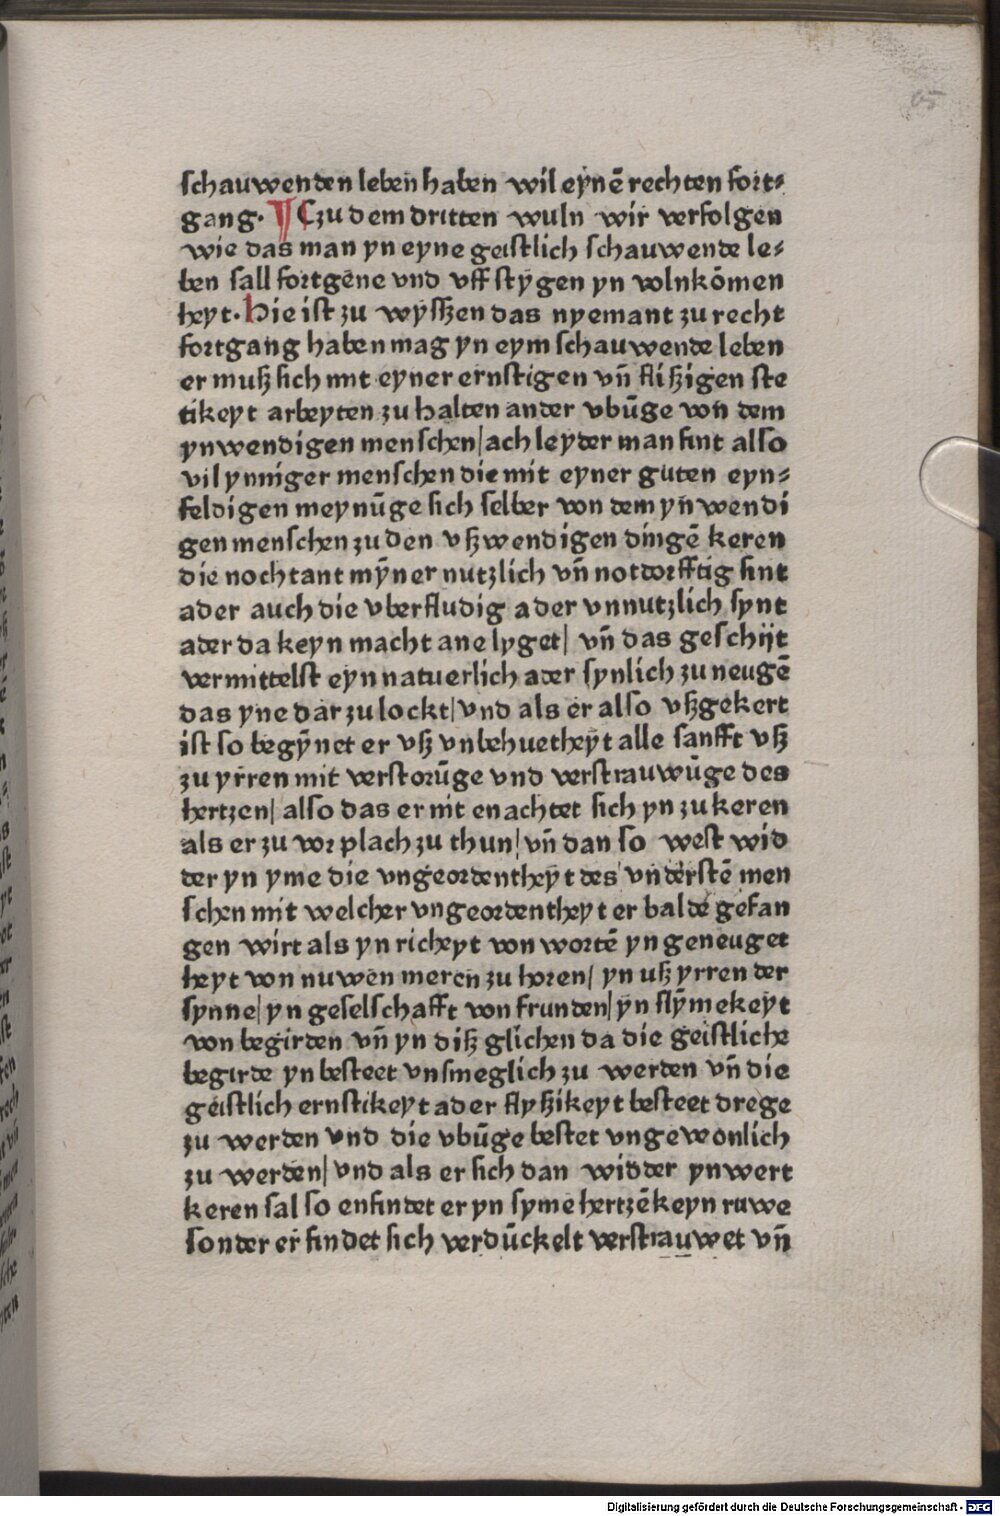 65
schauwenden leben haben wil eynē rechten fort⸗
gang. ¶ Czu dem dritten wuln wir verfolgen
wie das man yn eyne geistlich schauwende le⸗
ben sall fortgēne vnd vff stygen yn volnkōmen
heyt. Hie ist zu wysszen das nyemant zu recht
fortgang haben mag yn eym schauwende leben
er muß sich mit eyner ernstigen vn̄ flißigen ste
tikeyt arbeyten zu halten an der vbūge von dem
ynwendigen menschen/ ach leyder man fint also
vil ynniger menschen die mit eyner guten eyn⸗
feldigen meynūge sich selber von dem ynwendi
gen menschen zu den vßwendigen dingē keren
die nochtant mȳner nutzlich vn̄ notdorfftig sint
ader auch die vberfludig ader vnnutzlich synt
ader da keyn macht ane lyget/ vn̄ das geschijt
vermittelst eyn natuerlich ader synlich zu neugē
das yne dar zu lockt/ vnd als er also vßgekert
ist so begȳnet er vß vnbehuetheyt alle sanfft vß
zu yrren mit verstorūge vnd verstrauwūge des
hertzen/ also das er nit enachtet sich yn zu keren
als er zu vor plach zu thun/ vn̄ dan so west wid
der yn yme die vngeordentheyt des vnderstē men
schen mit welcher vngeordentheyt er balde gefan
gen wirt als yn richeyt von wortē yn geneuget
heyt von nuwen meren zu horen/ yn uß yrren der
synne/ yn geselschafft von frunden/ yn flȳmekeyt
von begirden vn̄ yn diß glichen da die geistliche
begirde yn besteet vnsmeglich zu werden vn̄ die
geistlich ernstikeyt ader flyßikeyt besteet drege
zu werden vnd die vbūge bestet vngewonlich
zu werden/ vnd als er sich dan widder ynwert
keren sal so enfindet er yn syme hertzē keyn ruwe
sonder er findet sich verdūckelt verstrauwet vn̄
Digitalisierung gefördert durch die Deutsche Forschungsgemeinschaft - DFG